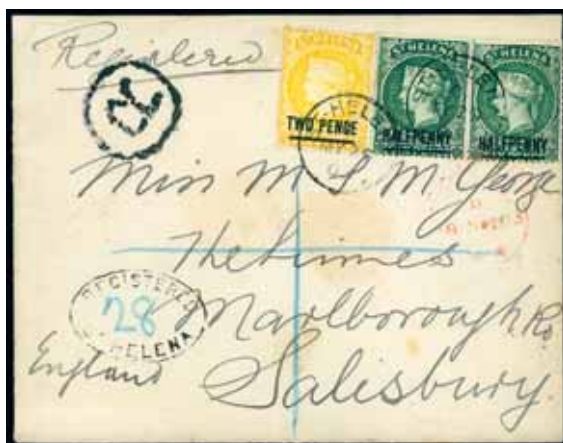 Registered
R
ST HELENA
TWO PENCE
ST HELENA
HALFPENNY
ST HELENA
HALFPENNY
Miss M. L. M. George
The Limes
Marlborough Rd
Salisbury.
England
REGISTERED
28
HELENA